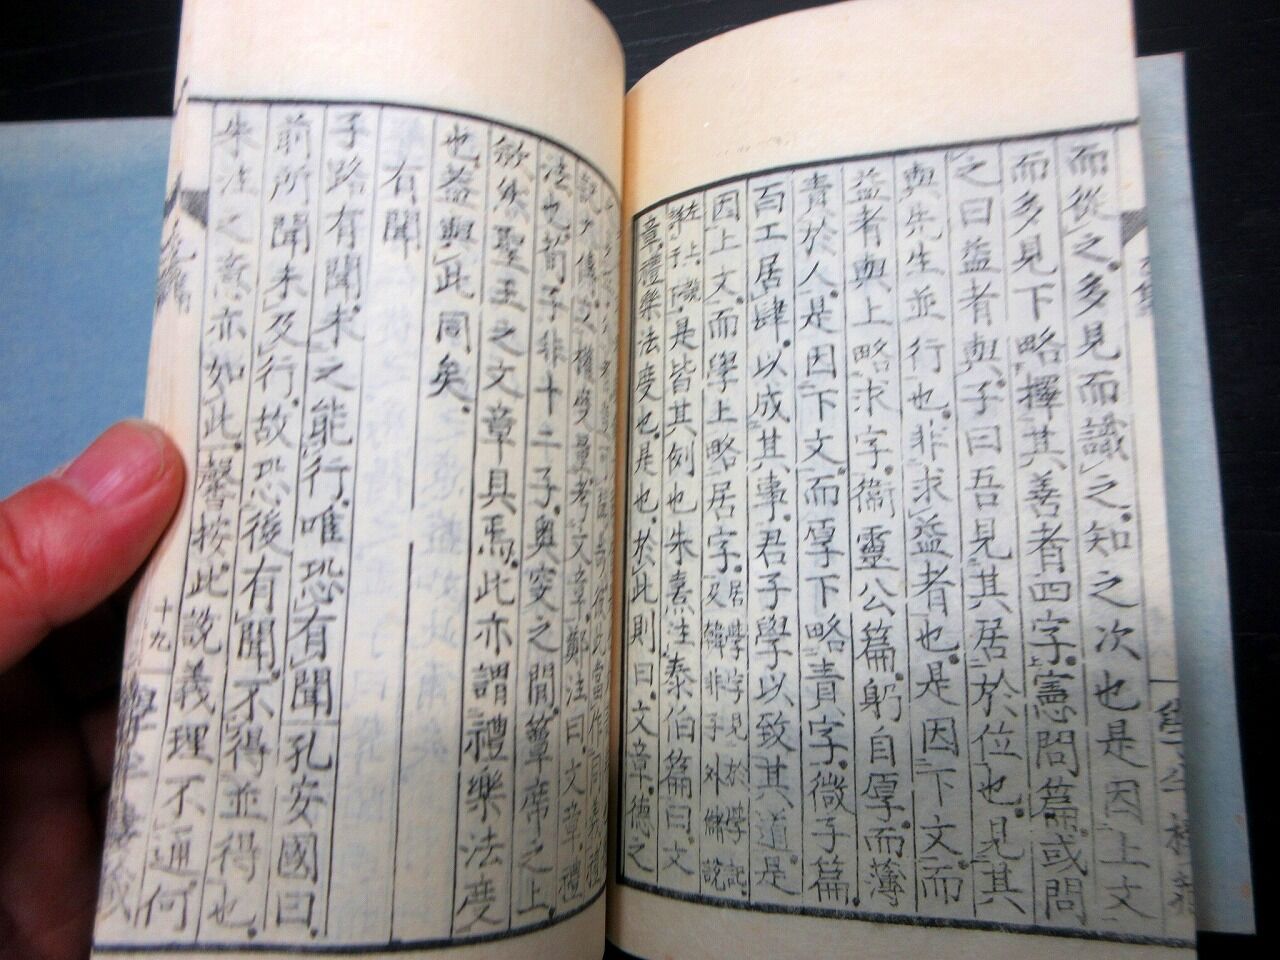 而從之多見而識之知之次也是因上文
而多見下略擇其善者四字憲問篇或問
之曰益者與子曰吾見其居於位也見其
與先生並行也非求益者也是因下文而
益者與上略求字衞靈公篇躬自厚而薄
責於人是因下文而厚下略責字微子篇
百工居肆以成其事君子學以致其道是
因上文而學上略居字居學字見於學記
又韓非子外儲說
左上
是皆其例也朱熹注泰伯篇曰文
章禮樂法度也是也於此則曰文章德之
文章鄭注曰文章禮
法也荀子非十二子奧窔之間簟席之上
歛然聖王之文章具焉此亦謂禮樂法度
也蓋與此同矣
有聞
子路有聞未之能行唯恐有聞孔安國曰
前所聞未及行故恐後有聞不得並得也
朱注之意亦如此馨按此說義理不通何
十九